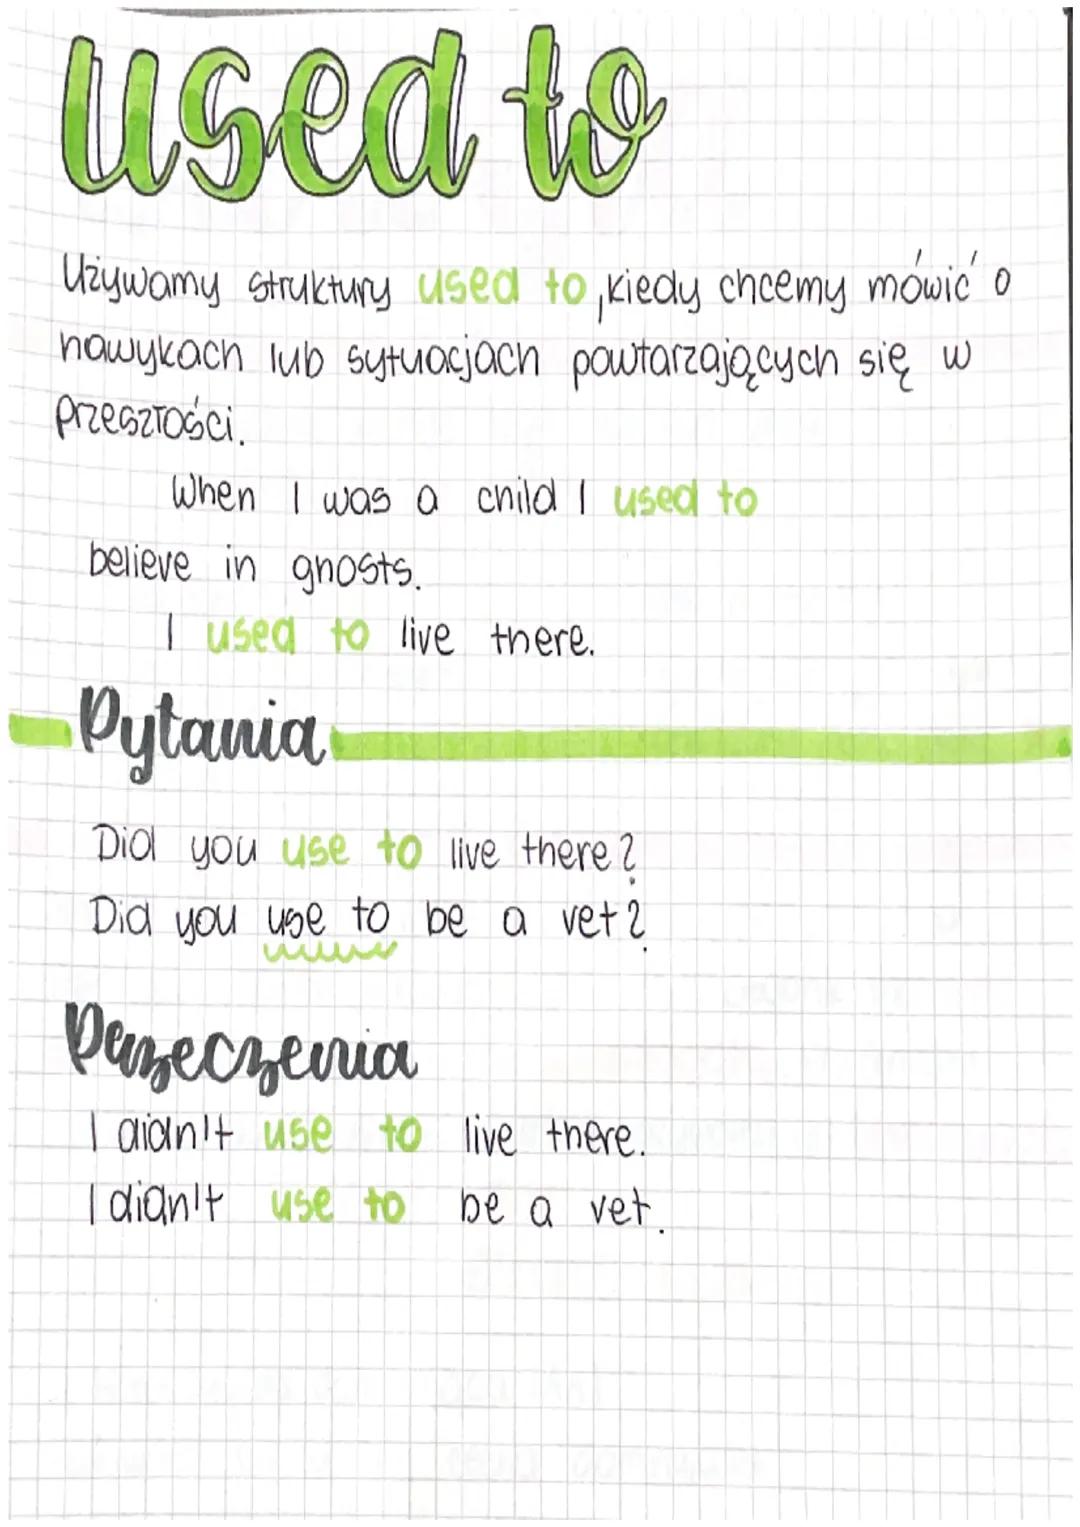 used to
Używamy struktury used to, kiedy chcemy mówić o
nawykach lub sytuacjach powtarzających się w
przeszłości.
When I was a child I used to
believe in ghosts.
I used to live there.
Pytania
Did you use to live there?
Did you use to be a vet?
Przeczenia
I didn't use to live there.
I didn't use to be a vet.